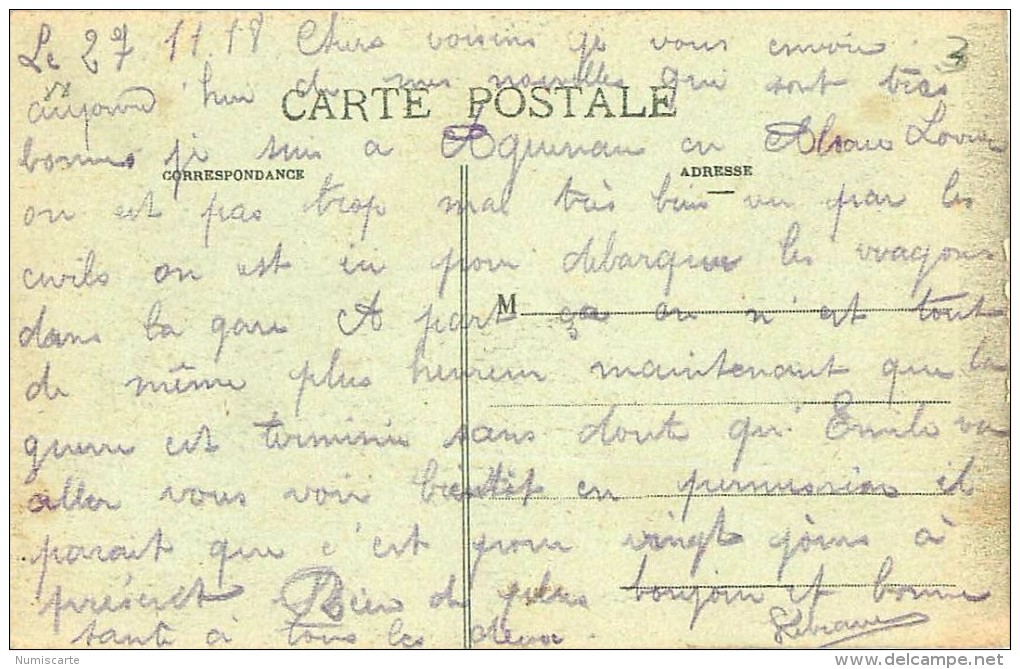 Le 27 11 18 Chers voisins je vous envoie
3
aujourd'hui de mes nouvelles qui sont très
CARTE POSTALE
bonnes je suis a Aguenau en Alsace Lorraine
CORRESPONDANCE
ADRESSE
on est pas trop mal très bien vu par les
civils on est ici pour débarquer les wagons
M
dans la gare A part ça on n'est tout
de même plus heureux maintenant que la
guerre est terminée sans doute qu'Emile va
aller vous voir bientôt en permission il
parait que c'est pour vingt jours à
présent Rien de plus bonjour et bonne
santé à tous les deux.
Numiscarte
www.delcampe.net